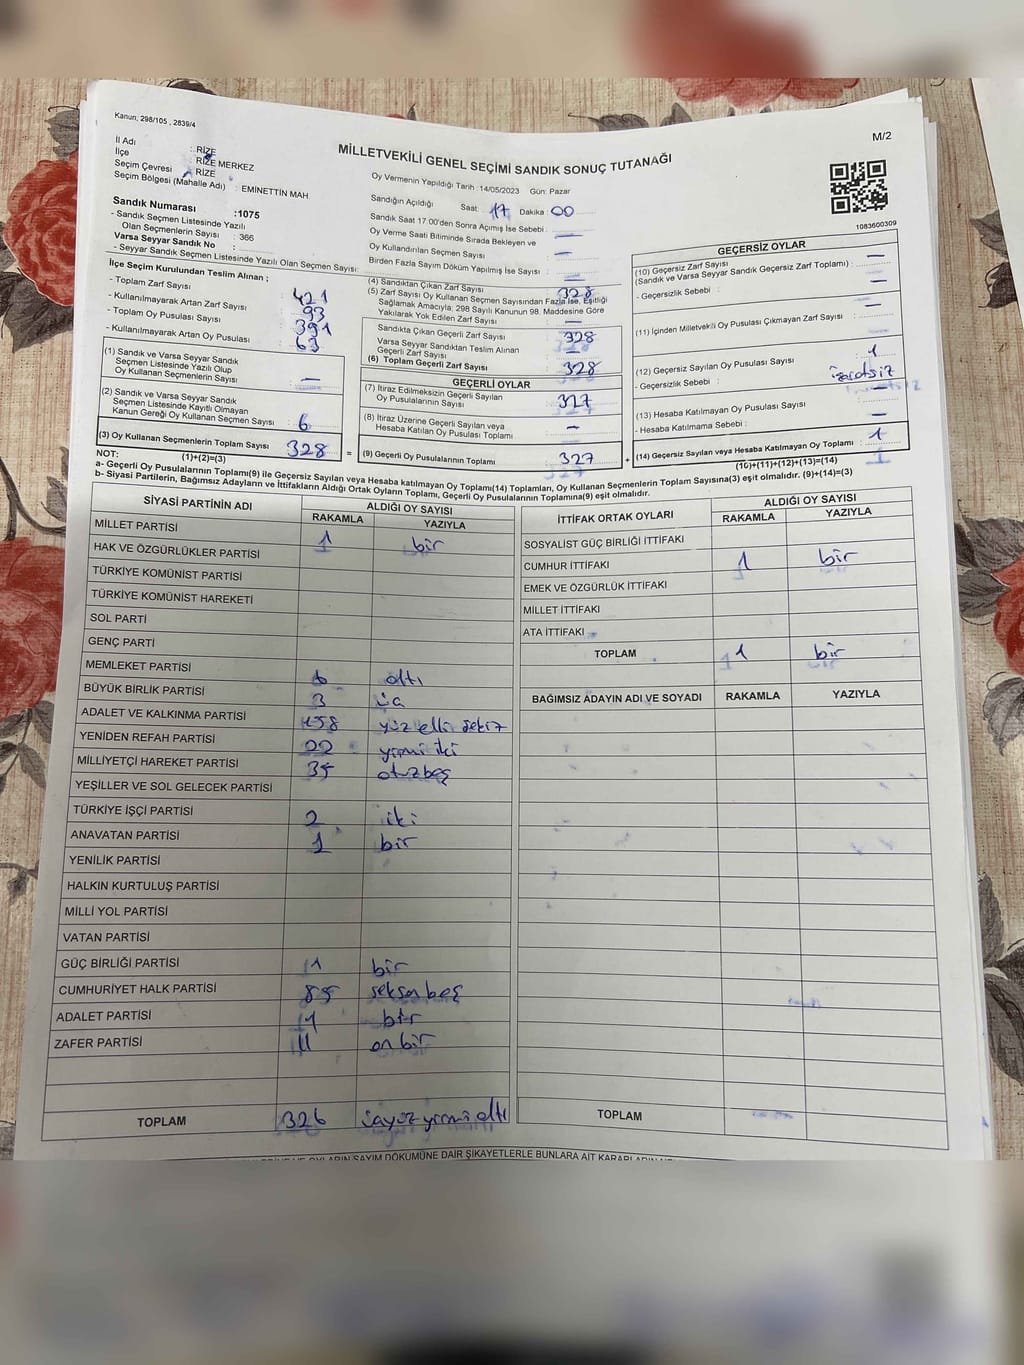 Kanun, 298/105 , 2839/4
M/2
MİLLETVEKİLİ GENEL SEÇİMİ SANDIK SONUÇ TUTANAĞI
İl Adı : RİZE
İlçe : RİZE MERKEZ
Seçim Çevresi : RİZE
Seçim Bölgesi (Mahalle Adı) : EMİNETTİN MAH
Sandık Numarası :1075
- Sandık Seçmen Listesinde Yazılı
Olan Seçmenlerin Sayısı : 366
Varsa Seyyar Sandık No :
- Seyyar Sandık Seçmen Listesinde Yazılı Olan Seçmen Sayısı:
İlçe Seçim Kurulundan Teslim Alınan ;
- Toplam Zarf Sayısı : 421
- Kullanılmayarak Artan Zarf Sayısı : 93
- Toplam Oy Pusulası Sayısı : 391
- Kullanılmayarak Artan Oy Pusulası : 63
(1) Sandık ve Varsa Seyyar Sandık
Seçmen Listesinde Yazılı Olup
Oy Kullanan Seçmenlerin Sayısı : —
(2) Sandık ve Varsa Seyyar Sandık
Seçmen Listesinde Kayıtlı Olmayan
Kanun Gereği Oy Kullanan Seçmen Sayısı : 6
(3) Oy Kullanan Seçmenlerin Toplam Sayısı 328
(1)+(2)=(3)
Oy Vermenin Yapıldığı Tarih : 14/05/2023 Gün: Pazar
Sandığın Açıldığı Saat: 17 Dakika : 00
Sandık Saat 17.00'den Sonra Açımış İse Sebebi : —
Oy Verme Saati Bitiminde Sırada Bekleyen ve
Oy Kullandırılan Seçmen Sayısı : —
Birden Fazla Sayım Döküm Yapılmış İse Sayısı : —
(4) Sandıktan Çıkan Zarf Sayısı : 328
(5) Zarf Sayısı Oy Kullanan Seçmen Sayısından Fazla İse, Eşitliği
Sağlamak Amacıyla; 298 Sayılı Kanunun 98. Maddesine Göre
Yakılarak Yok Edilen Zarf Sayısı : —
Sandıkta Çıkan Geçerli Zarf Sayısı : 328
Varsa Seyyar Sandıktan Teslim Alınan
Geçerli Zarf Sayısı : —
(6) Toplam Geçerli Zarf Sayısı : 328
GEÇERLİ OYLAR
(7) İtiraz Edilmeksizin Geçerli Sayılan
Oy Pusulalarının Sayısı : 327
(8) İtiraz Üzerine Geçerli Sayılan veya
Hesaba Katılan Oy Pusulası Toplamı : —
= (9) Geçerli Oy Pusulalarının Toplamı : 327 +
1083600309
GEÇERSİZ OYLAR
(10) Geçersiz Zarf Sayısı
(Sandık ve Varsa Seyyar Sandık Geçersiz Zarf Toplamı) : —
- Geçersizlik Sebebi : —
(11) İçinden Milletvekili Oy Pusulası Çıkmayan Zarf Sayısı : —
(12) Geçersiz Sayılan Oy Pusulası Sayısı : 1
- Geçersizlik Sebebi : işaretsiz
(13) Hesaba Katılmayan Oy Pusulası Sayısı : —
- Hesaba Katılmama Sebebi : —
(14) Geçersiz Sayılan veya Hesaba Katılmayan Oy Toplamı : 1
(10)+(11)+(12)+(13)=(14)
NOT:
a- Geçerli Oy Pusulalarının Toplamı(9) ile Geçersiz Sayılan veya Hesaba katılmayan Oy Toplamı(14) Toplamları, Oy Kullanan Seçmenlerin Toplam Sayısına(3) eşit olmalıdır. (9)+(14)=(3)
b- Siyasi Partilerin, Bağımsız Adayların ve İttifakların Aldığı Ortak Oyların Toplamı, Geçerli Oy Pusulalarının Toplamına(9) eşit olmalıdır.
SİYASİ PARTİNİN ADI ALDIĞI OY SAYISI
RAKAMLA YAZIYLA
MİLLET PARTİSİ 1 bir
HAK VE ÖZGÜRLÜKLER PARTİSİ
TÜRKİYE KOMÜNİST PARTİSİ
TÜRKİYE KOMÜNİST HAREKETİ
SOL PARTİ
GENÇ PARTİ
MEMLEKET PARTİSİ 6 altı
BÜYÜK BİRLİK PARTİSİ 3 üç
ADALET VE KALKINMA PARTİSİ 158 yüz elli sekiz
YENİDEN REFAH PARTİSİ 22 yirmi iki
MİLLİYETÇİ HAREKET PARTİSİ 35 otuz beş
YEŞİLLER VE SOL GELECEK PARTİSİ
TÜRKİYE İŞÇİ PARTİSİ 2 iki
ANAVATAN PARTİSİ 1 bir
YENİLİK PARTİSİ
HALKIN KURTULUŞ PARTİSİ
MİLLİ YOL PARTİSİ
VATAN PARTİSİ
GÜÇ BİRLİĞİ PARTİSİ 1 bir
CUMHURİYET HALK PARTİSİ 85 seksen beş
ADALET PARTİSİ 1 bir
ZAFER PARTİSİ 11 on bir
TOPLAM 326 üçyüz yirmi altı
İTTİFAK ORTAK OYLARI ALDIĞI OY SAYISI
RAKAMLA YAZIYLA
SOSYALİST GÜÇ BİRLİĞİ İTTİFAKI
CUMHUR İTTİFAKI 1 bir
EMEK VE ÖZGÜRLÜK İTTİFAKI
MİLLET İTTİFAKI
ATA İTTİFAKI
TOPLAM 1 bir
BAĞIMSIZ ADAYIN ADI VE SOYADI RAKAMLA YAZIYLA
TOPLAM
VE OYLARIN SAYIM DÖKÜMÜNE DAİR ŞİKAYETLERLE BUNLARA AİT KARARLARIN